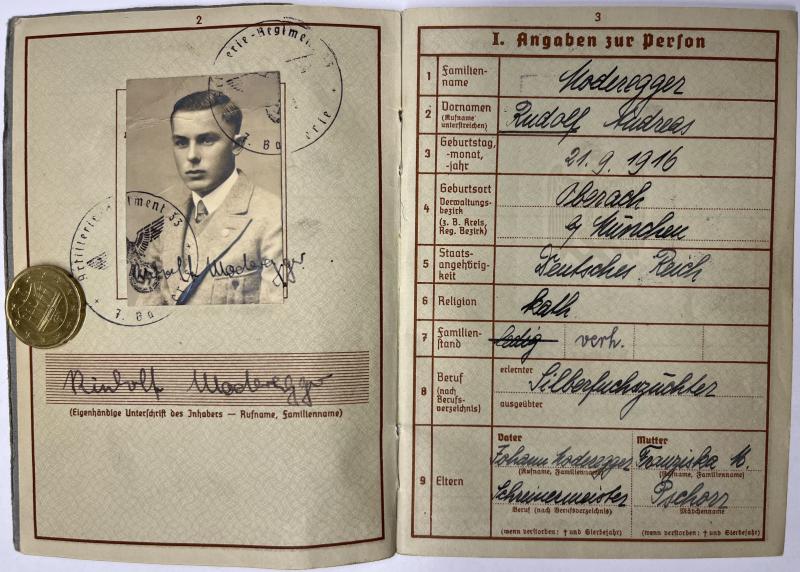 2
Artillerie-Regiment 53
7. Ba
Artillerie-Regiment 53
7. Ba
Rudolf Moderegger
Rudolf Moderegger
(Eigenhändige Unterschrift des Inhabers — Rufname, Familienname)
3
I. Angaben zur Person
1 Familien-
name
Moderegger
2 Vornamen
(Rufname
unterstreichen)
Rudolf Andreas
3 Geburtstag,
-monat,
-jahr
21.9.1916
4 Geburtsort
Verwaltungs-
bezirk
(z. B. Kreis,
Reg. Bezirk)
Oberach
b/ München
5 Staats-
angehörig-
keit
Deutsches Reich
6 Religion
kath.
7 Familien-
stand
ledig verh.
8 Beruf
(nach
Berufs-
verzeichnis)
erlernter
Silberfuchszüchter
ausgeübter
9 Eltern
Vater
Johann Moderegger
(Rufname, Familienname)
Schreinermeister
Beruf (nach Berufsverzeichnis)
(wenn verstorben: † und Sterbejahr)
Mutter
Franziska M.
(Rufname, Familienname)
Pschorr
Mädchenname
(wenn verstorben: † und Sterbejahr)